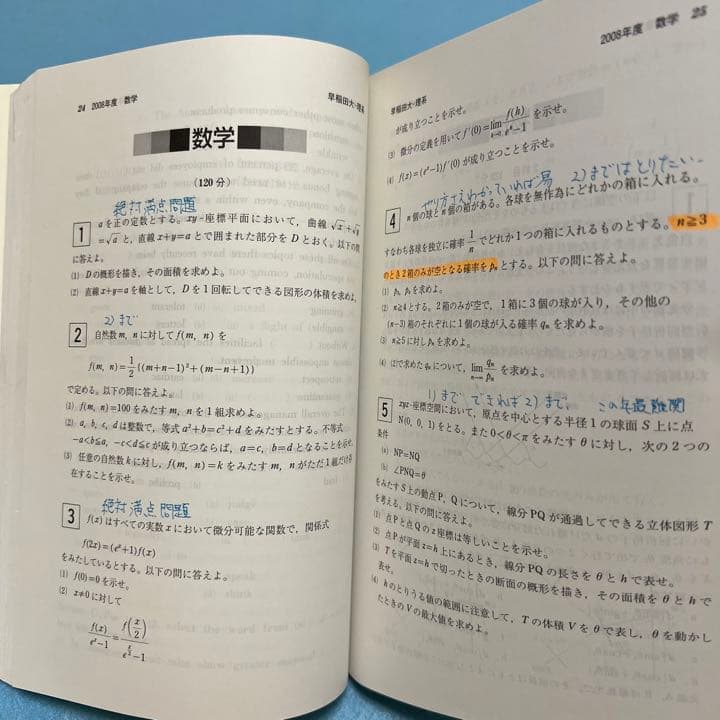 24 2008年度 数学
早稲田大-理系
数学
(120分)
絶対満点問題
1 aを正の定数とする。xy-座標平面において,曲線√x+√y
=√aと,直線x+y=aとで囲まれた部分をDとおく。以下の問
に答えよ。
(1) Dの概形を描き,その面積を求めよ。
(2) 直線x+y=aを軸として,Dを1回転してできる図形の体積を求めよ。
2)まで
2 自然数m, nに対してf(m, n)を
f(m, n)=1/2{(m+n-1)²+(m-n+1)}
で定める。以下の問に答えよ。
(1) f(m, n)=100をみたすm, nを1組求めよ。
(2) a, b, c, dは整数で,等式a²+b=c²+dをみたすとする。不等式
-a<b≦a, -c<d≦cが成り立つならば,a=c, b=dとなることを示せ。
(3) 任意の自然数kに対し,f(m, n)=kをみたすm, nがただ1組だけ存
在することを示せ。
絶対満点問題
3 f(x)はすべての実数xにおいて微分可能な関数で,関係式
f(2x)=(eˣ+1)f(x)
をみたしているとする。以下の問に答えよ。
(1) f(0)=0を示せ。
(2) x≠0に対して
f(x)/(eˣ-1)=f(x/2)/(e^(x/2)-1)
2008年度 数学 25
早稲田大-理系
が成り立つことを示せ。
(3) 微分の定義を用いてf'(0)=lim f(h)/(eʰ-1)を示せ。
(4) f(x)=(eˣ-1)f'(0)が成り立つことを示せ。
やり方さえわかっていれば易 2)まではとりたい..
4 n個の球とn個の箱がある。各球を無作為にどれかの箱に入れる。
すなわち各球を独立に確率1/nでどれか1つの箱に入れるものとする。n≧3
のとき2箱のみが空となる確率をpₙとする。以下の問に答えよ。
(1) p₃, p₄を求めよ。
(2) n≧4とする。2箱のみが空で,1箱に3個の球が入り,その他の
(n-3)箱のそれぞれに1個の球が入る確率qₙを求めよ。
(3) n≧5に対しpₙを求めよ。
(4) (2)で求めたqₙについて,lim n→∞ qₙ/pₙを求めよ。
1)まで できれば2)まで この年最難関
5 xyz-座標空間において,原点を中心とする半径1の球面S上に点
N(0, 0, 1)をとる。また0<θ<πをみたすθに対し,次の2つの
条件
(a) NP=NQ
(b) ∠PNQ=θ
をみたすS上の動点P, Qについて,線分PQが通過してできる立体図形T
を考える。以下の問に答えよ。
(1) 点Pと点Qのz座標は等しいことを示せ。
(2) 点Pが平面z=h上にあるとき,線分PQの長さをθとhで表せ。
(3) Tを平面z=hで切ったときの断面の概形を描き,その面積をθとhで
表せ。
(4) hのとりうる値の範囲に注意して,Tの体積Vをθで表し,θを動かし
たときのVの最大値を求めよ。